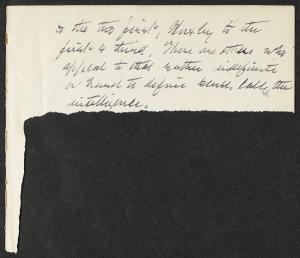 to the two first, Huxley to the
first & third, There are others who
appeal to that rather indefinite
or hard to define sense, called the
intelligence.